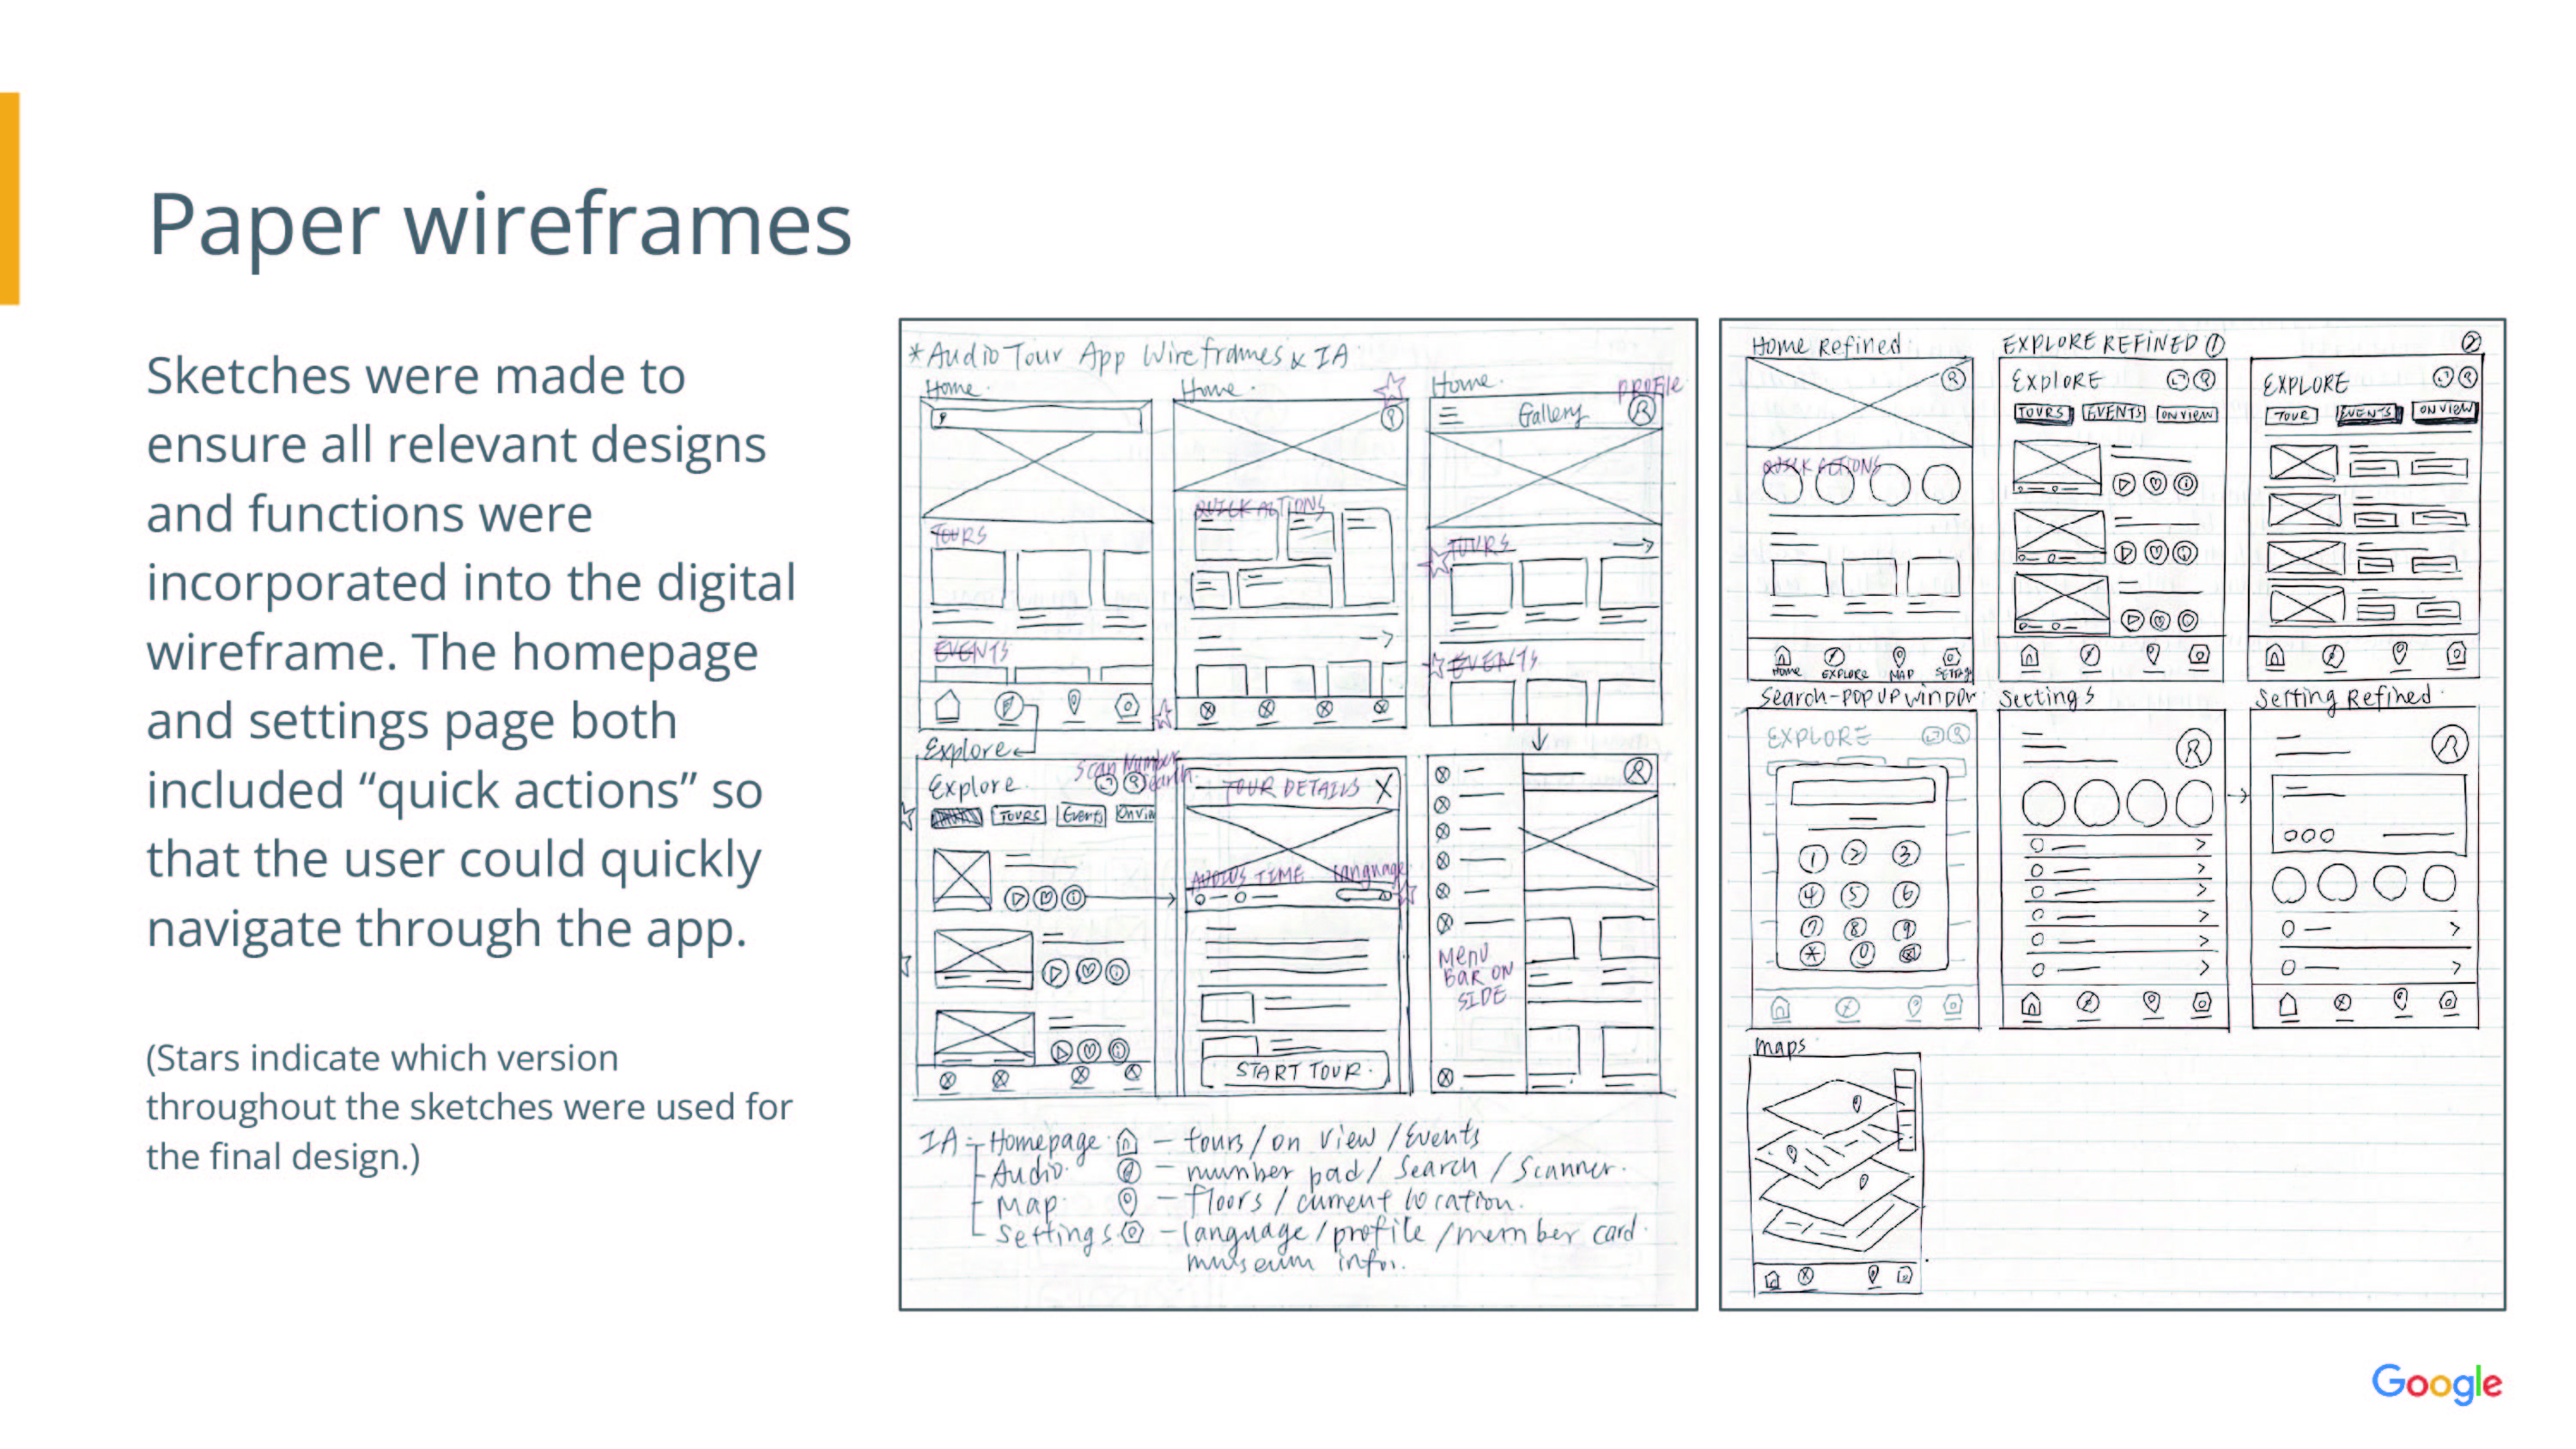 Paper wireframes
Sketches were made to
ensure all relevant designs
and functions were
incorporated into the digital
wireframe. The homepage
and settings page both
included “quick actions” so
that the user could quickly
navigate through the app.
(Stars indicate which version
throughout the sketches were used for
the final design.)
*Audio Tour App Wireframes & IA
Home.
Home.
Home.
PROFILE
Gallery
QUICK ACTIONS
TOURS
TOURS
EVENTS
EVENTS
Explore
Scan Number
Search
Explore
TOURS
Events
On Vie
TOUR DETAILS X
AUDIOS TIME
Language
MENU
BAR ON
SIDE
START TOUR
IA - Homepage - tours / on view / Events
Audio - number pad / Search / Scanner.
Map - floors / current location.
Settings - language / profile / member card
museum infor.
Home Refined
EXPLORE REFINED 1
2
EXPLORE
TOURS
EVENTS
ON VIEW
EXPLORE
TOUR
EVENTS
ON VIEW
QUICK ACTIONS
Home
EXPLORE
MAP
Search-POPUP WINDOW
Settings
Setting Refined
EXPLORE
1 2 3
4 5 6
7 8 9
* 0
maps
Google